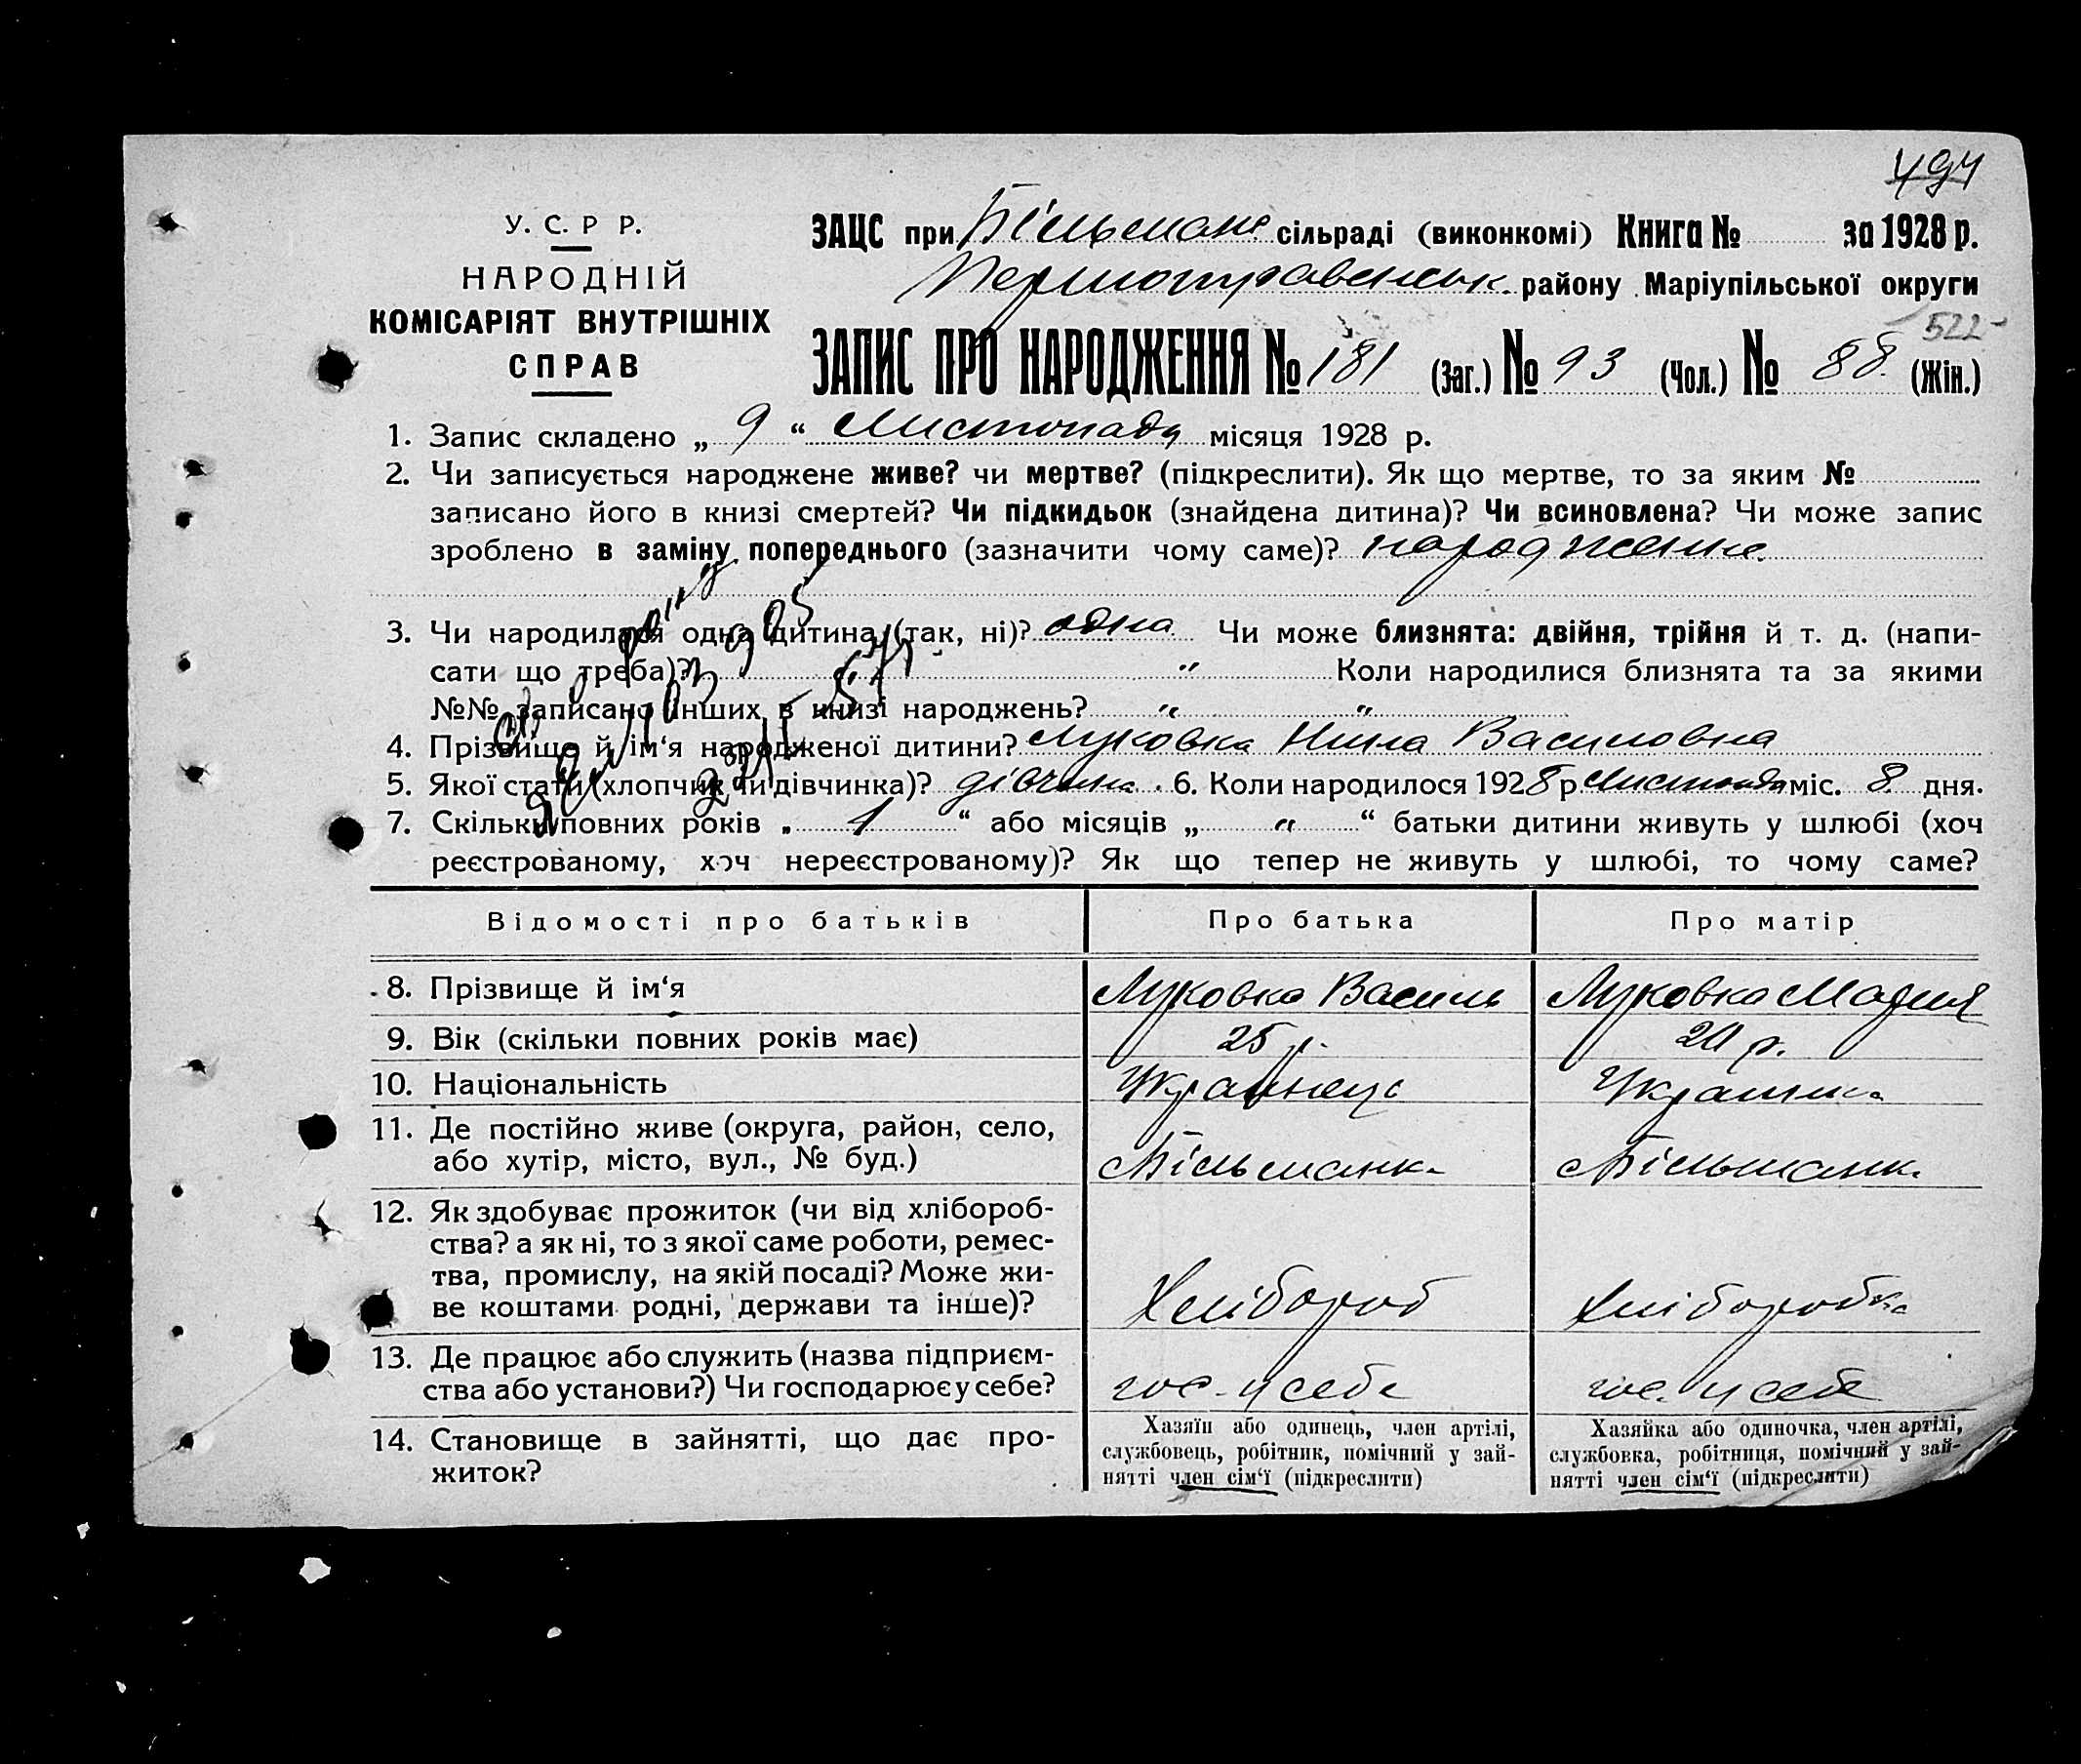 494
У. С. Р Р.
НАРОДНІЙ
КОМІСАРІЯТ ВНУТРІШНІХ
СПРАВ
ЗАЦС при Більманс сільраді (виконкомі) Книга № за 1928 р.
Першотравенськ. району Маріупільської округи
522
ЗАПИС ПРО НАРОДЖЕННЯ № 181 (Заг.) № 93 (Чол.) № 88 (Жін.)
1. Запис складено „ 9 “ Листопада місяця 1928 р.
2. Чи записується народжене живе? чи мертве? (підкреслити). Як що мертве, то за яким №
записано його в книзі смертей? Чи підкидьок (знайдена дитина)? Чи всиновлена? Чи може запис
зроблено в заміну попереднього (зазначити чому саме)? народження
3. Чи народилася одна дитина (так, ні)? одна Чи може близнята: двійня, трійня й т. д. (напи-
сати що треба)? " Коли народилися близнята та за якими
№№ записано інших в книзі народжень? " "
4. Прізвище й ім‘я народженої дитини? Луковка Нина Василовна
5. Якої стати (хлопчик чи дівчинка)? дівчина. 6. Коли народилося 1928 р Листопада міс. 8 дня.
7. Скільки повних років „ 1 “ або місяців „ " “ батьки дитини живуть у шлюбі (хоч
реєстрованому, хоч нереєстрованому)? Як що тепер не живуть у шлюбі, то чому саме?
Відомості про батьків Про батька Про матір
8. Прізвище й ім‘я Луковка Василь Луковка Мария
9. Вік (скільки повних років має) 25 р. 20 р.
10. Національність Украінець Украинка
11. Де постійно живе (округа, район, село,
або хутір, місто, вул., № буд.) Більманка Більманка
12. Як здобуває прожиток (чи від хлібороб-
ства? а як ні, то з якої саме роботи, ремес-
тва, промислу, на якій посаді? Може жи-
ве коштами родні, держави та інше)? Хлібороб Хліборобка
13. Де працює або служить (назва підприєм-
ства або установи?) Чи господарює у себе? гос. у себе гос. у себе
14. Становище в зайнятті, що дає про-
житок?
Хазяїн або одинець, член артілі,
службовець, робітник, помічний у зай-
нятті член сім‘ї (підкреслити)
Хазяйка або одиночка, член артілі,
службовка, робітниця, помічний у зай-
нятті член сім‘ї (підкреслити)